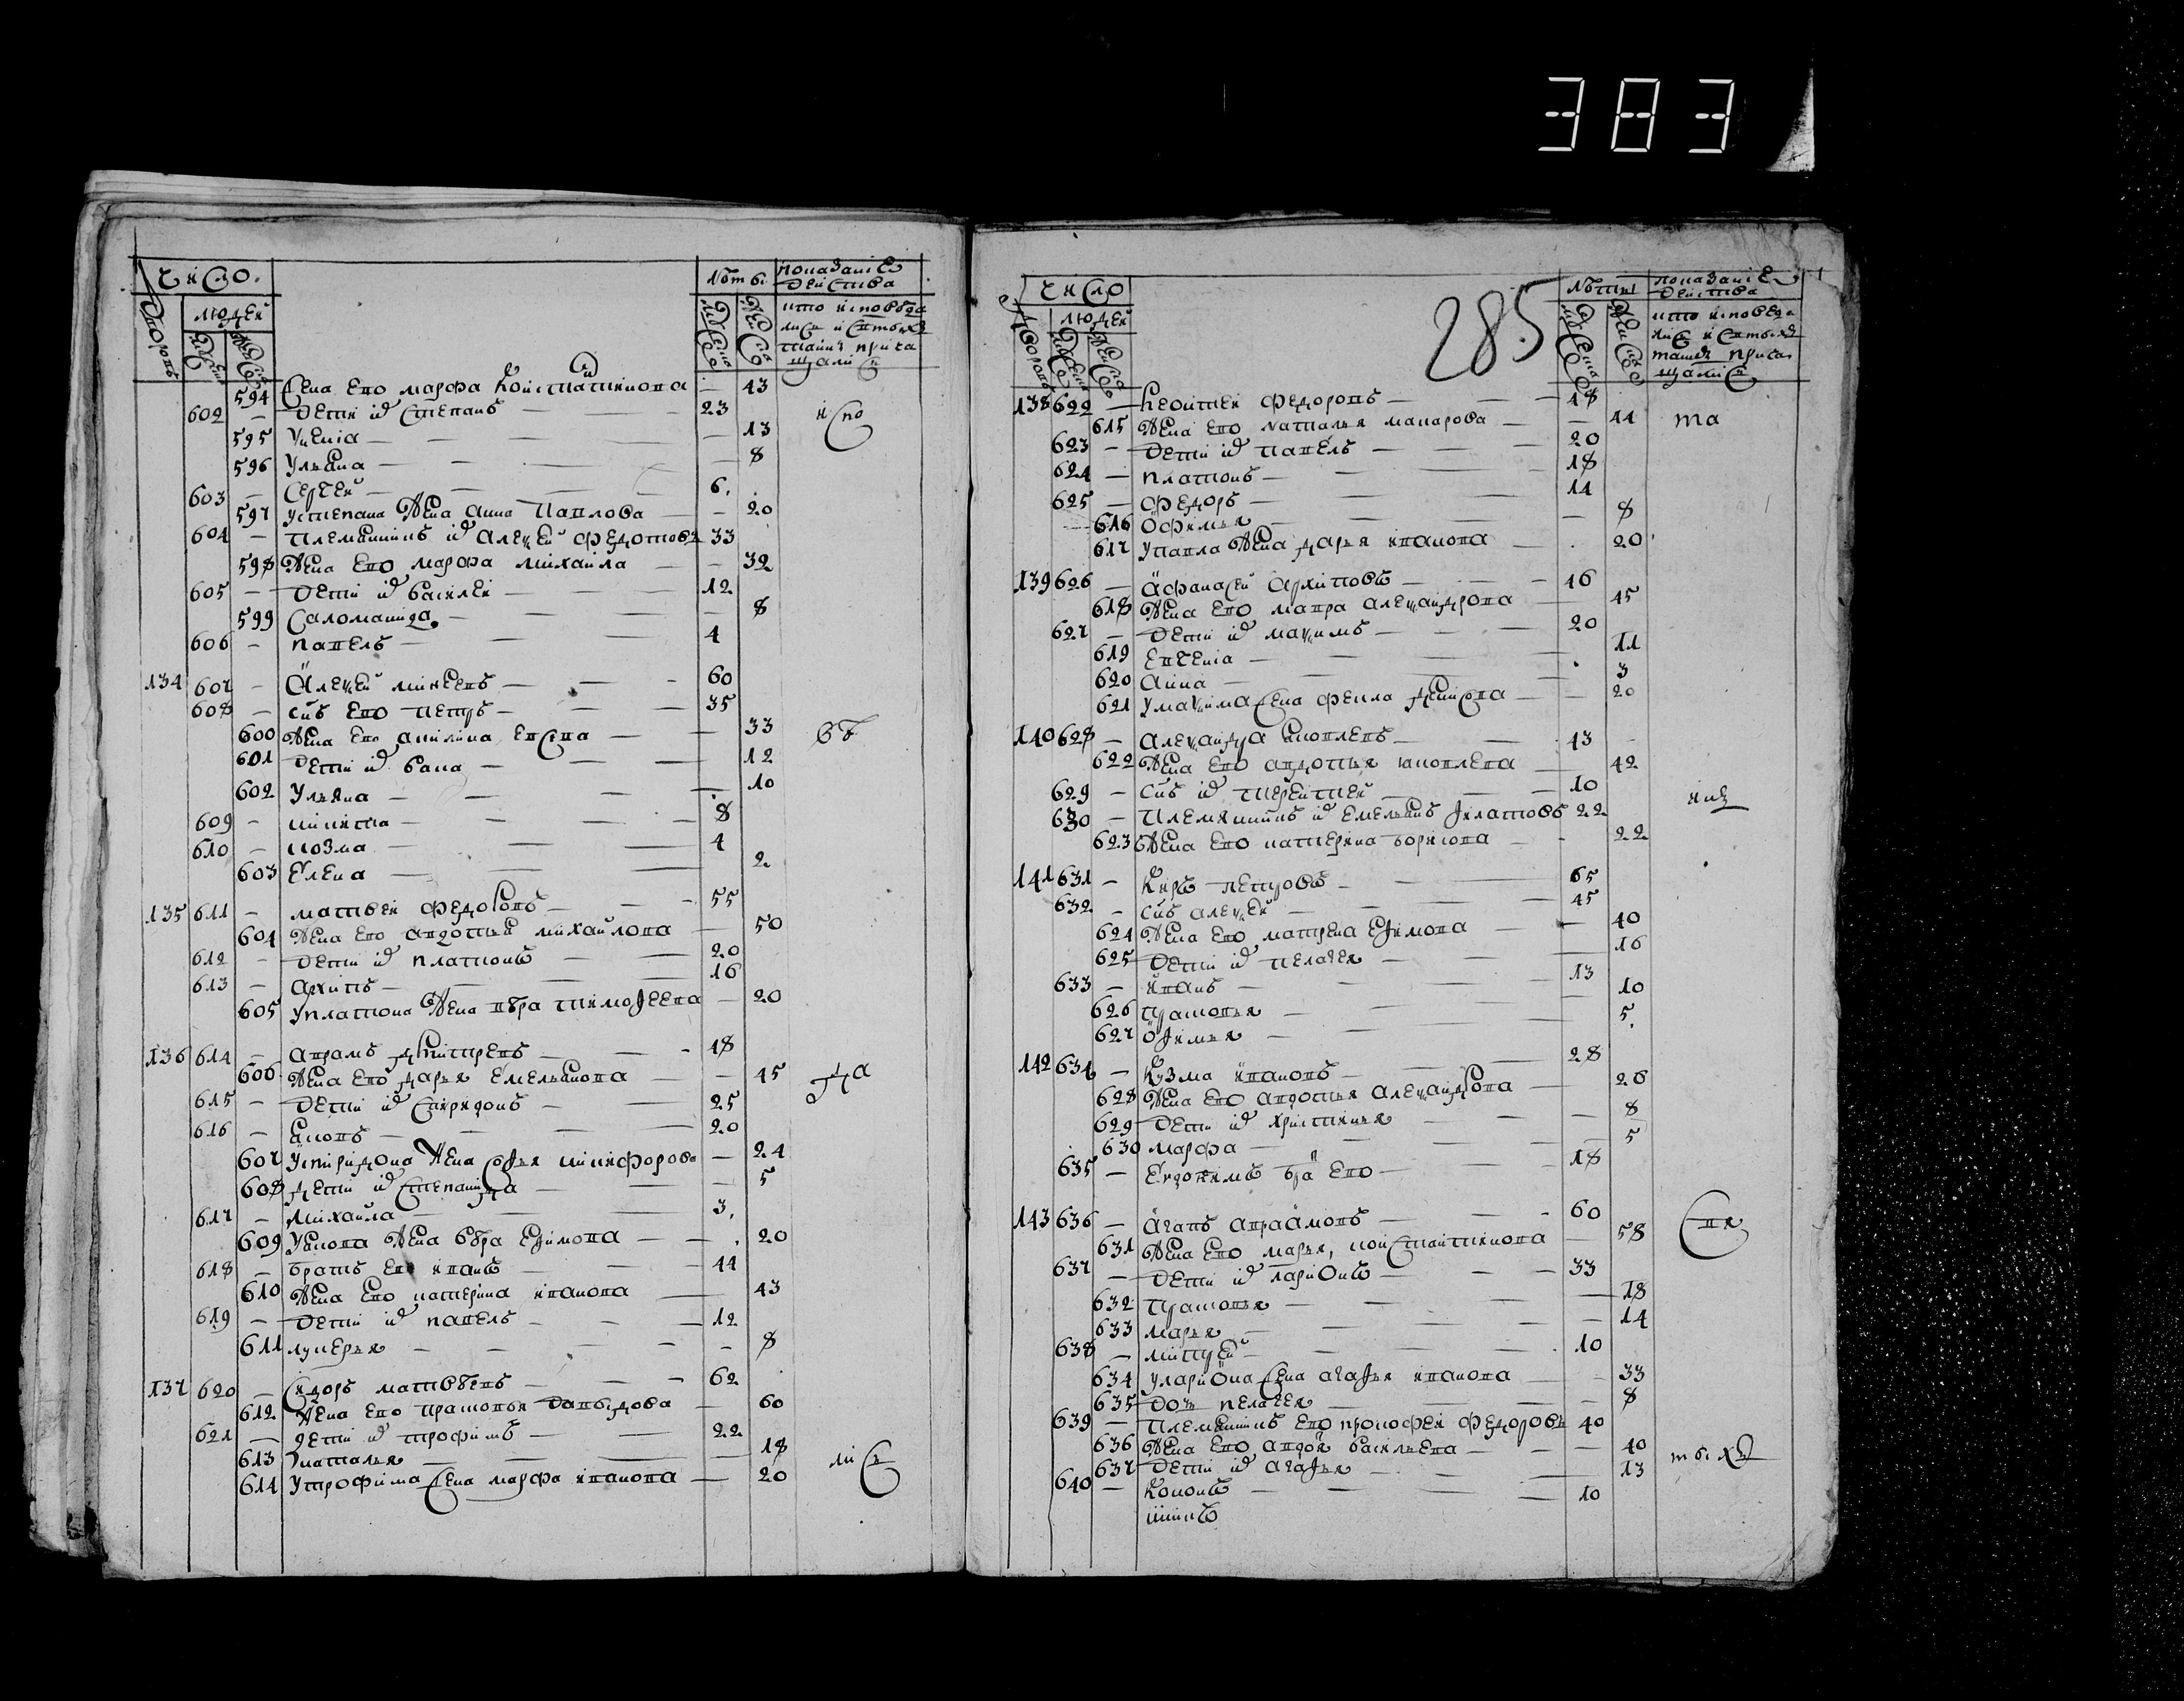 383
Число.
Лѣтъ.
показаніе
действа
людей
кто исповеда
лися и святыхъ
таинъ прича
щалися
дворовъ
594 жена ево марфа констатинова — 43
602 — дети их степанъ — 23
испо
595 Уксенія — 13
596 Ульяна — 8
603 — Сергей — 6.
597 устепана жена анна павлова — 20
604 — племянникъ их алексей федотовъ 33
598 жена ево марфа михаила — 32
605 — дети их василей — 12
599 Саломанида — 8
606 — павелъ — 4
134 607 — Алексей михеевъ — 60
608 — снъ ево петръ — 35
600 жена ево акилина евсева — 33
вѣ
601 дети их васа — 12
602 Ульяна — 10
609 — никита — 8
610 — козма — 4
603 Елена — 2
135 611 — матвей федоровъ — 55
604 жена ево авдотья михайлова — 50
612 — дети их платонъ — 20
613 — архипъ — 16
605 уплатона жена вѣра тимофеева — 20
136 614 — аврамъ дмитревъ — 48
606 жена ево дарья емельянова — 45
да
615 — дети их спиридонъ — 25
616 — яковъ — 20
607 успиридона жена софья никифорова — 24
608 дети их степанида — 5
617 — михайла — 3.
609 Уякова жена вѣра ефимова — 20
618 — братъ ево иванъ — 44
610 жена ево катерина иванова — 43
619 — дети их павелъ — 12
611 лукерья — 8
137 620 — Сидоръ матвѣевъ — 62
612 жена ево прасковья давыдова — 60
621 — дети их трофимъ — 22
613 наталья — 18
лися
614 Утрофима жена марфа иванова — 20
285
Число
Лѣты
показаніе
действа
людей
кто исповеда
лися и святыхъ
таинъ прича
щалися
дворовъ
138 622 — Леонтей федоровъ — 48
615 жена ево наталья макарова — 44
та
623 — дети их павелъ — 20
624 — платонъ — 18
625 — федоръ — 14
616 Офимья — 8
617 упавла жена дарья иванова — 20
139 626 — Афанасей архиповъ — 46
618 жена ево мавра александрова — 45
627 — дети их максимъ — 20
619 евгенія — 11
620 анна — 3
621 умаксима жена фекла денисова — 20
140 628 — александра яковлевъ — 43
622 жена ево авдотья яковлева — 42
629 — снъ их терентей — 10
инъ
630 — племянникъ их емельянъ филатовъ 22
623 жена ево катерина борисова — 22
141 631 — Киръ петровъ — 65
632 — снъ алексей — 45
624 жена ево матрена ефимова — 40
625 дети их пелагея — 16
633 — иванъ — 13
626 прасковья — 10
627 офимья — 5.
142 634 — Кузма ивановъ — 28
628 жена ево авдотья александрова — 26
629 дети их христинья — 8
630 марфа — 5
635 — Евдокимъ бра ево — 18
143 636 — Агапъ авраамовъ — 60
631 жена ево марья, константинова — 58
свя
637 — дети их ларионъ — 33
632 прасковья — 18
633 марья — 14
638 — митрей — 10
634 улариона жена агафья иванова — 33
635 дочь пелагея — 8
639 — племянникъ ево прокофей федоровъ 40
636 жена ево авдоя васильева — 40
тыхъ
637 дети их агафья — 13
640 — Кононъ — 10